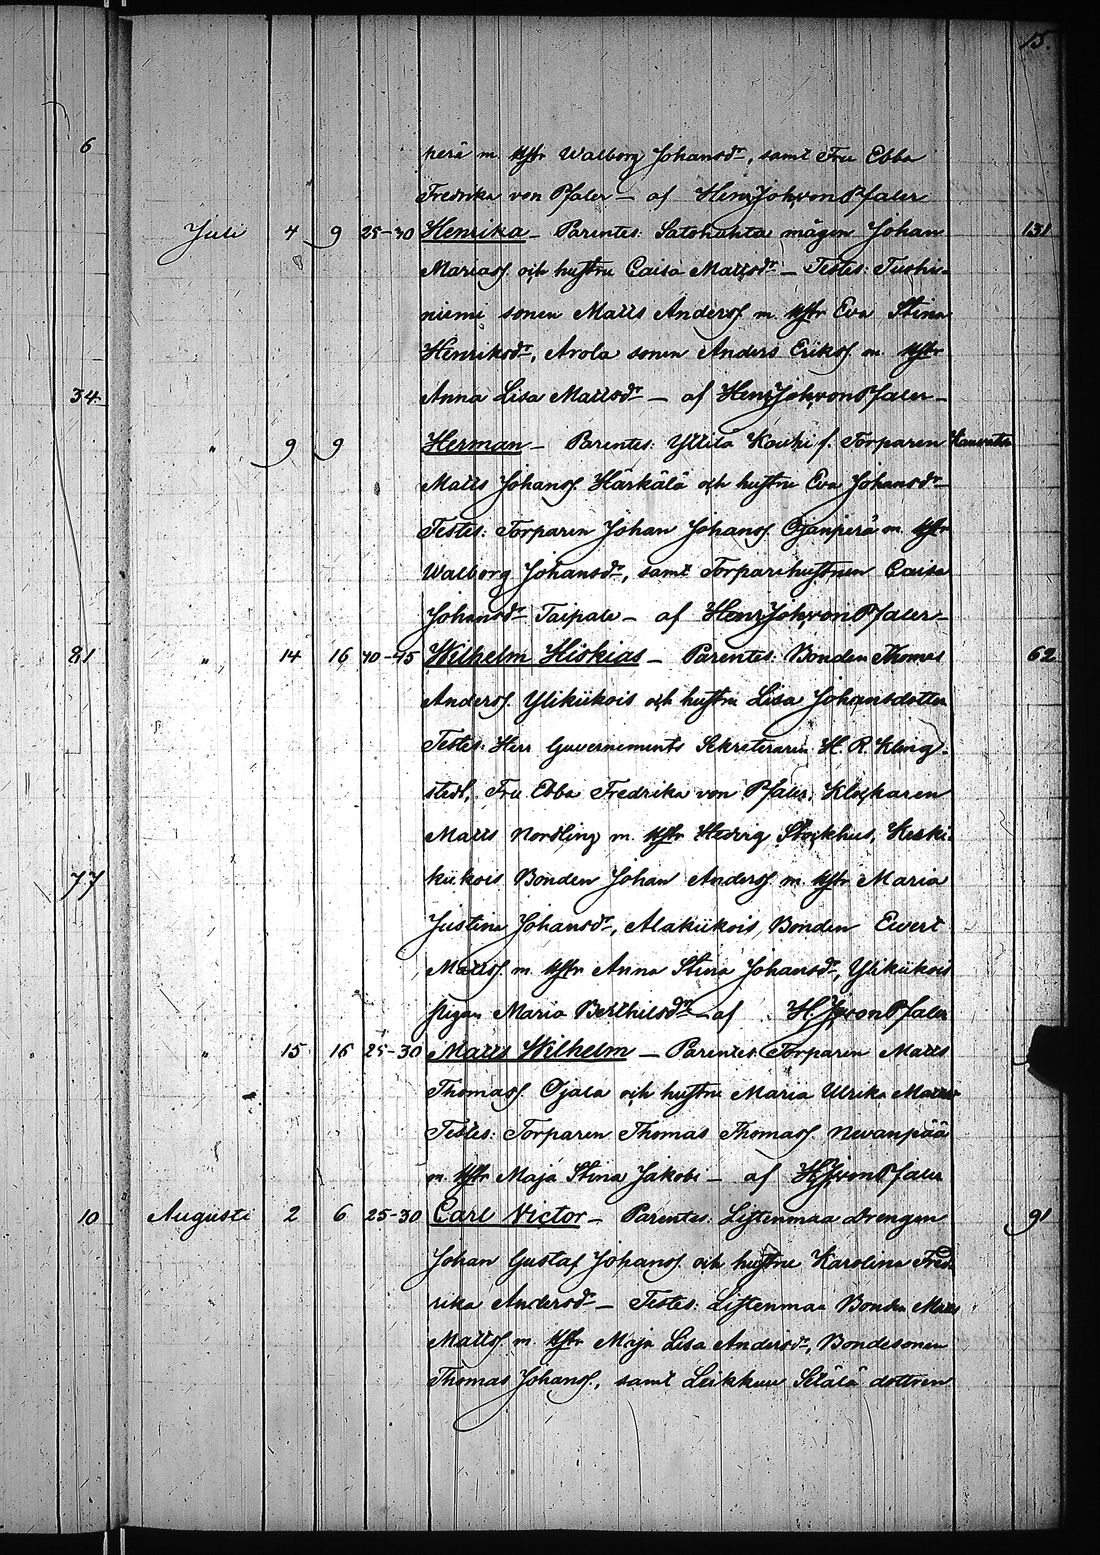 15.
6
perä m. hstr Walborg Johansdr, samt Fru Ebba
Fredrika von Pfaler — af HenrJohvonPfaler
Juli 4 9 25-30 Henrika — Parentes: Satohahta mågen Johan 131
Mariass. och hustru Caisa Mattsdr — Testes: Tuohi-
niemi sonen Matts Anderss. m. hstr Eva Stina
Henriksdr, Arola sonen Anders Erikss. m. hstr
34 Anna Lisa Mattsdr — af HenrJohvonPfaler —
" 9 9 Herman — Parentes: Yltilä Kouhi f. Torparen
Matts Johanss. Härkälä och hustru Eva Johansdr
Testes: Torparen Johan Johanss. Ojanperä m. hstr
Walborg Johansdr, samt Torparehustrun Caisa
Johansdr Taipale — af HenrJohvonPfaler —
81 " 14 16 40-45 Wilhelm Hiskias — Parentes: Bonden Thomas 62
Anderss. Ylikiikois och hustru Lisa Johansdotter
Testes: Herr Guvernements Sekreteraren H. R. Kling-
stedt, Fru Ebba Fredrika von Pfaler, Klockaren
Matts Nordling m. hstr Hedvig Stockhus, Keski-
77 kiikois Bonden Johan Anderss. m. hstr Maria
Justina Johansdr, Alakiikois Bonden Evert
Mattss. m. hstr Anna Stina Johansdr, Ylikiikois
pigan Maria Berthilsdr — af H.JvonPfaler
" 15 16 25-30 Matts Wilhelm — Parentes: Torparen Matts
Thomass. Ojala och hustru Maria Ulrika
Testes: Torparen Thomas Thomass. Nevanpää
m. hstr Maja Stina Jakobi — af HJvonPfaler
10 Augusti 2 6 25-30 Carl Victor — Parentes: Listenmaa drengen 91
Johan Gustaf Johanss. och hustru Karolina Fred-
rika Andersdr — Testes: Listenmaa Bonden Matts
Mattss. m. hstr Maja Lisa Andersdr, Bondesonen
Thomas Johanss., samt Leikkuu Sälälä dottren